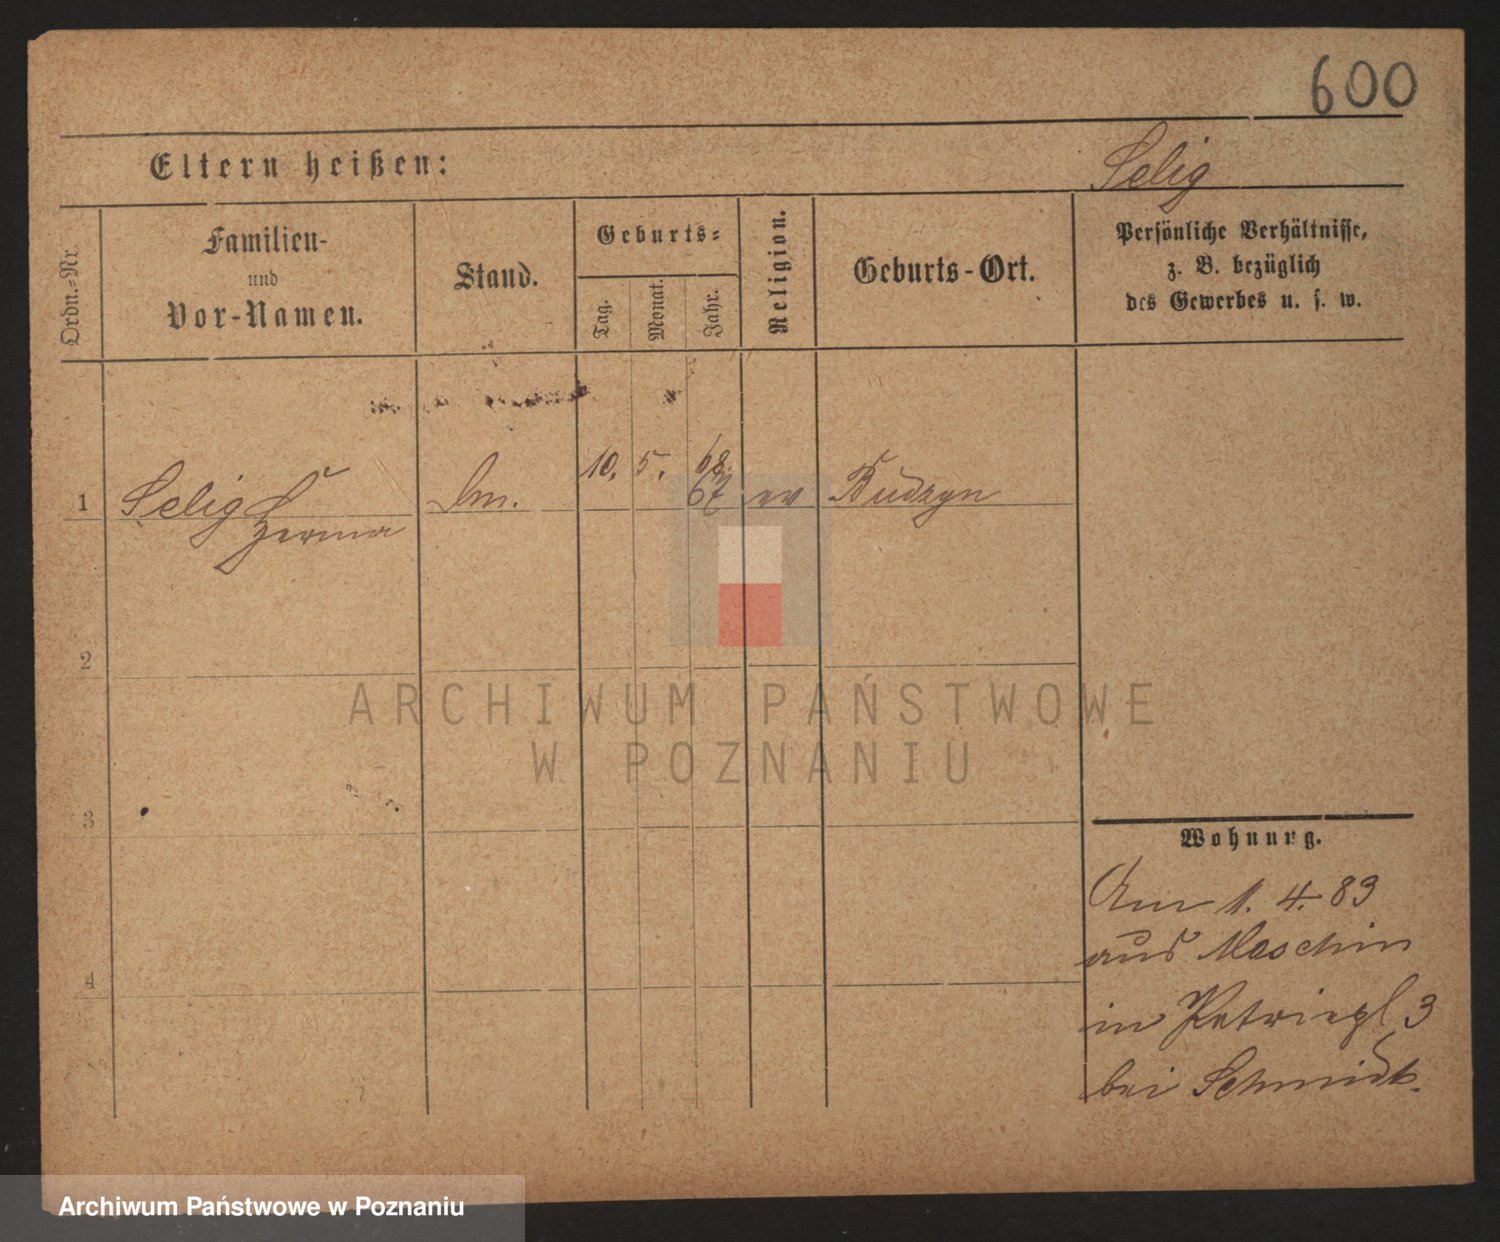 600
Eltern heißen:
Selig
Ordn.-Nr.
Familien-
und
Vor-Namen.
Stand.
Geburts-
Tag.
Monat.
Jahr.
Religion.
Geburts-Ort.
Persönliche Verhältnisse,
z. B. bezüglich
des Gewerbes u. s. w.
1
Selig
Herma
10. 5. 68.
67
ev
Budzyn
2
3
4
ARCHIWUM PAŃSTWOWE
W POZNANIU
Wohnung.
Am 1. 4. 83
aus Moschin
in Petripl 3
bei Schmidt.
Archiwum Państwowe w Poznaniu